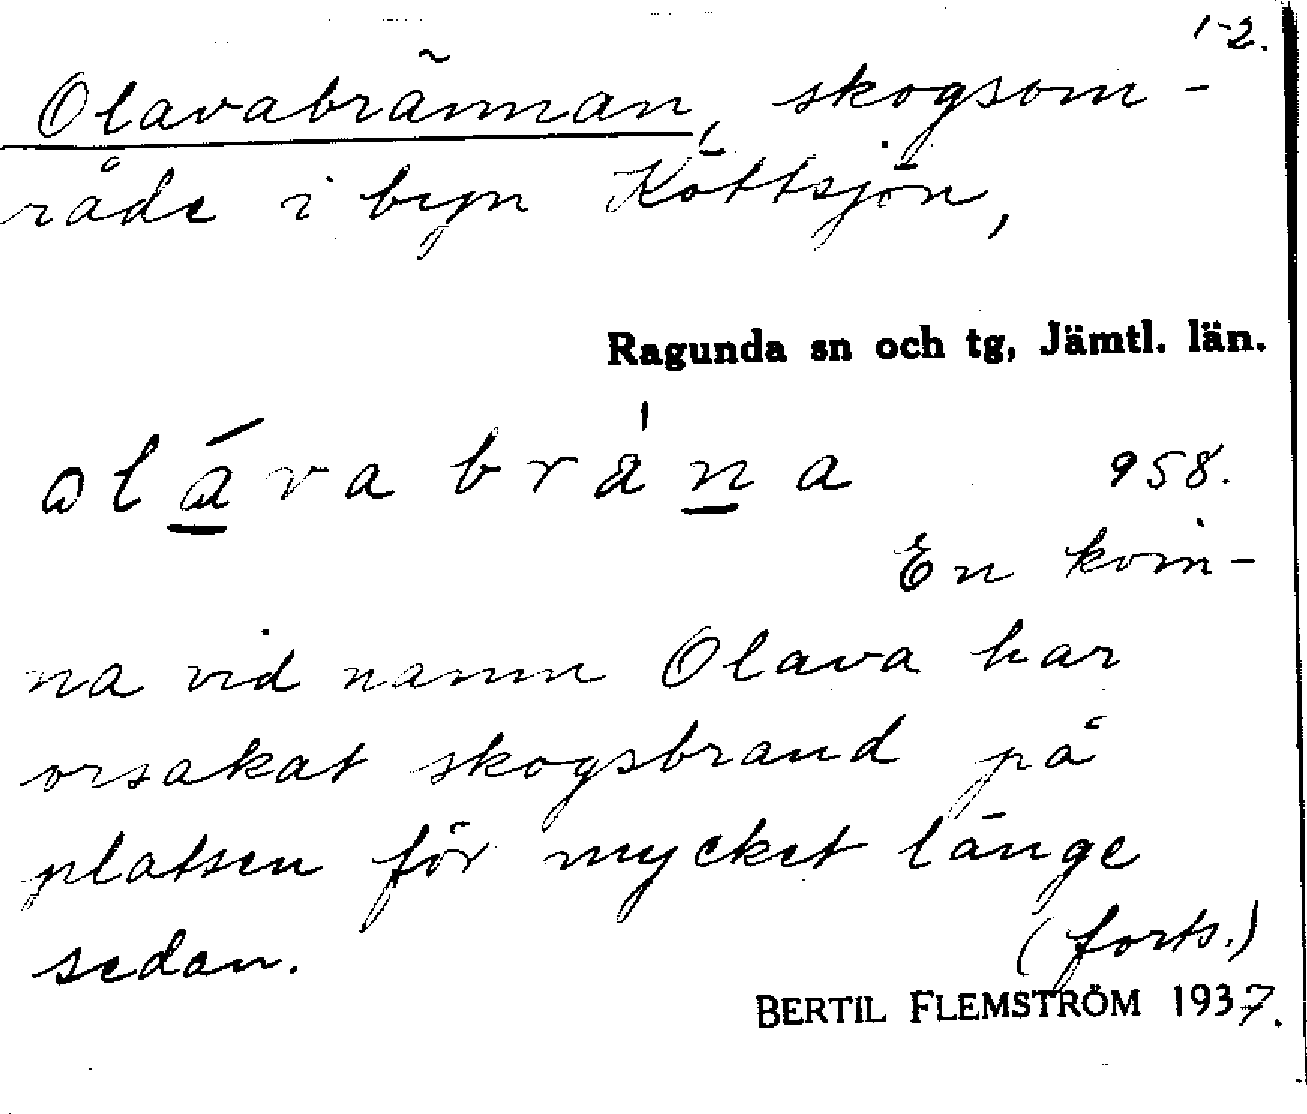 1-2.
Olavabrännan, skogsom-
råde i byn Köttsjön,
Ragunda sn och tg, Jämtl. län.
ɷlá̱va brana 958.
En kvin-
na vid namn Olava har
orsakat skogsbrand på
platsen för mycket länge
sedan. (forts.)
BERTIL FLEMSTRÖM 1937.